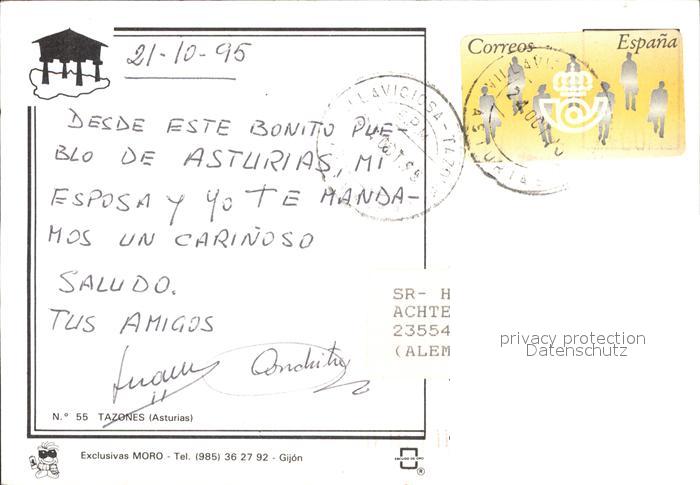 21-10-95
Correos España
DESDE ESTE BONITO PUE-
BLO DE ASTURIAS, MI
ESPOSA Y YO TE MANDA-
MOS UN CARIÑOSO
SALUDO.
TUS AMIGOS
SR- H
ACHTE
23554
(ALEM
privacy protection
Datenschutz
N.º 55 TAZONES (Asturias)
Exclusivas MORO - Tel. (985) 36 27 92 - Gijón